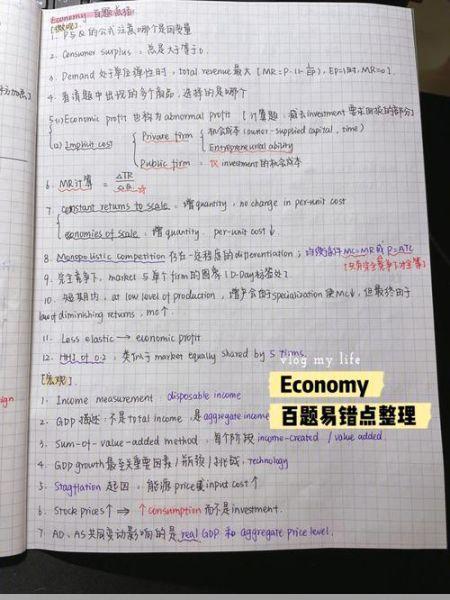 Economy 百题总结
[微观]
1. P与Q的公式注意哪个是因变量
2. Consumer surplus，总是大于等于0.
3. Demand 处于单位弹性时，total revenue 最大 [MR=P·(1-1/EP), EP=1时, MR=0].
4. 看清题中出现的多个商品，选择的是哪个
5.(1) Economic profit 也称为 abnormal profit [计算题，减去investment 要求回报的部分]
(2) Implicit cost
Private firm = 机会成本 (owner-supplied capital, time)
Entrepreneurial ability
Public firm = 仅 investment的机会成本
6. MR计算 = △TR/△Q ☆
7. constant returns to scale，增quantity，no change in per-unit cost
economies of scale，增 quantity. per-unit cost↓.
8. Monopolistic competition 存在一定程度的 differentiation；均衡条件MC=MR 或 P=ATC
[只有完全竞争下才全等]
9. 完全竞争下，market 与单个firm的图像 (D-Day标签处)
10. 短期内，at low level of production，增产会由于specialization 使MC↓，但最终由于
law of diminishing returns，MC↑.
11. Less elastic → economic profit
12. HHI of 0.2，类似于 market equally shared by 5 firms.
[宏观]
1. Income measurement: disposable income
2. GDP 描述，不是total income，是 aggregate income
3. Sum-of-value-added method，每个阶段 income-created / value added
4. GDP growth最至关重要因素 / 瓶颈 / 挑战，technology
5. Stagflation 起因，能源price或input cost↑
6. Stock prices↑ → ↑consumption 而不是investment.
7. AD、AS共同变动影响的是real GDP 和 aggregate price level.
vlog my life
Economy
百题易错点整理